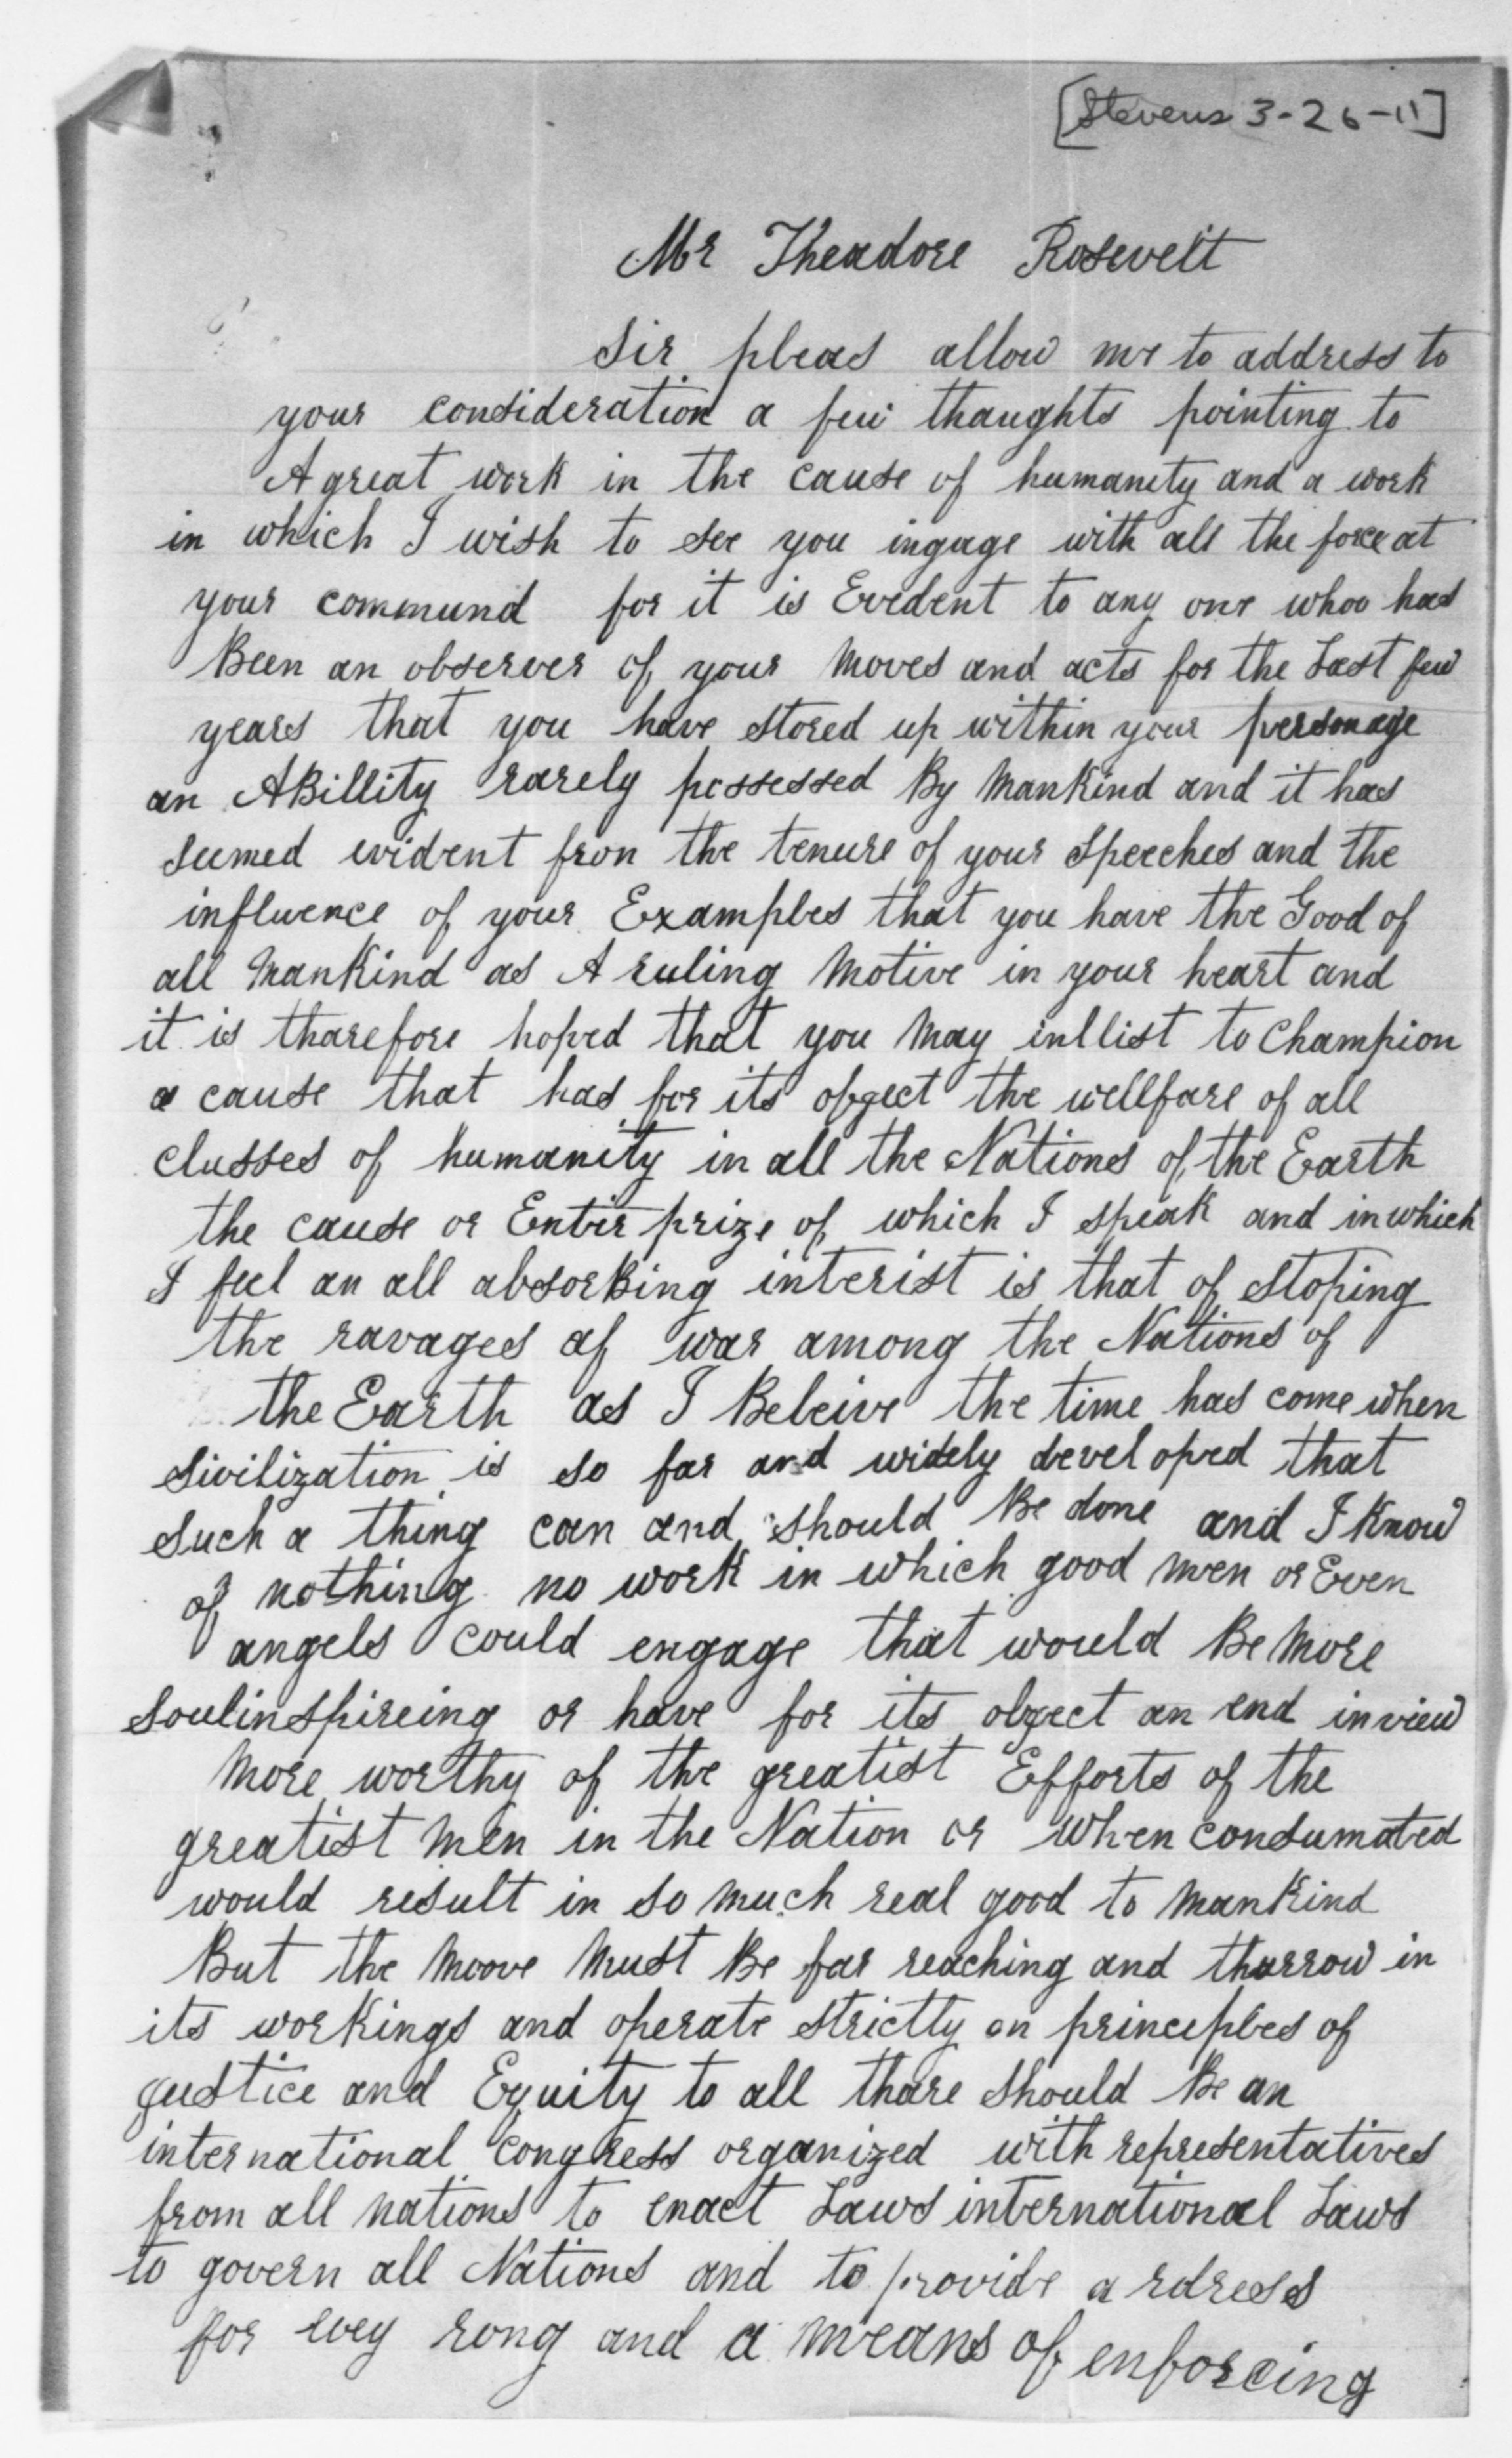 [Stevens 3-26-11]
Mr Theadore Rosevelt
Sir pleas allow me to address to
your consideration a few thaughts pointing to
A great work in the cause of humanety and a work
in which I wish to see you ingage with all the force at
your commund for it is Evedent to any one whoo has
Been an observer of your moves and acts for the Last few
years that you have stored up within your personage
an ABillity rarely possessed By mankind and it has
seemed evident fron the tenure of your speeches and the
influence of your Examples that you have the Good of
all mankind as A ruling motive in your heart and
it is tharefore hoped that you may inllist to champion
a cause that has for its obgect the wellfare of all
clusses of humanity in all the Nations of the Earth
the cause or Enterprize of which I speak and in which
I feel an all absorBing interist is that of stoping
the ravages af war among the Nations of
the Earth as I Beleive the time has come when
sivilization is so far and widely developed that
such a thing can and should Be done and I know
of nothing no work in which good men or Even
angels could engage that would Be more
soulinspireing or have for its obgect an end in view
more worthy of the greatist Efforts of the
greatist men in the Nation or when consumated
would result in so much real good to mankind
But the moove must Be far reaching and thurrow in
its workings and operate strictly on princeples of
gustice and Equity to all thare should Be an
international congress organized with representatives
from all nations to enact Laws international Laws
to govern all Nations and to provide a rdress
for evey rong and a means of enforcing